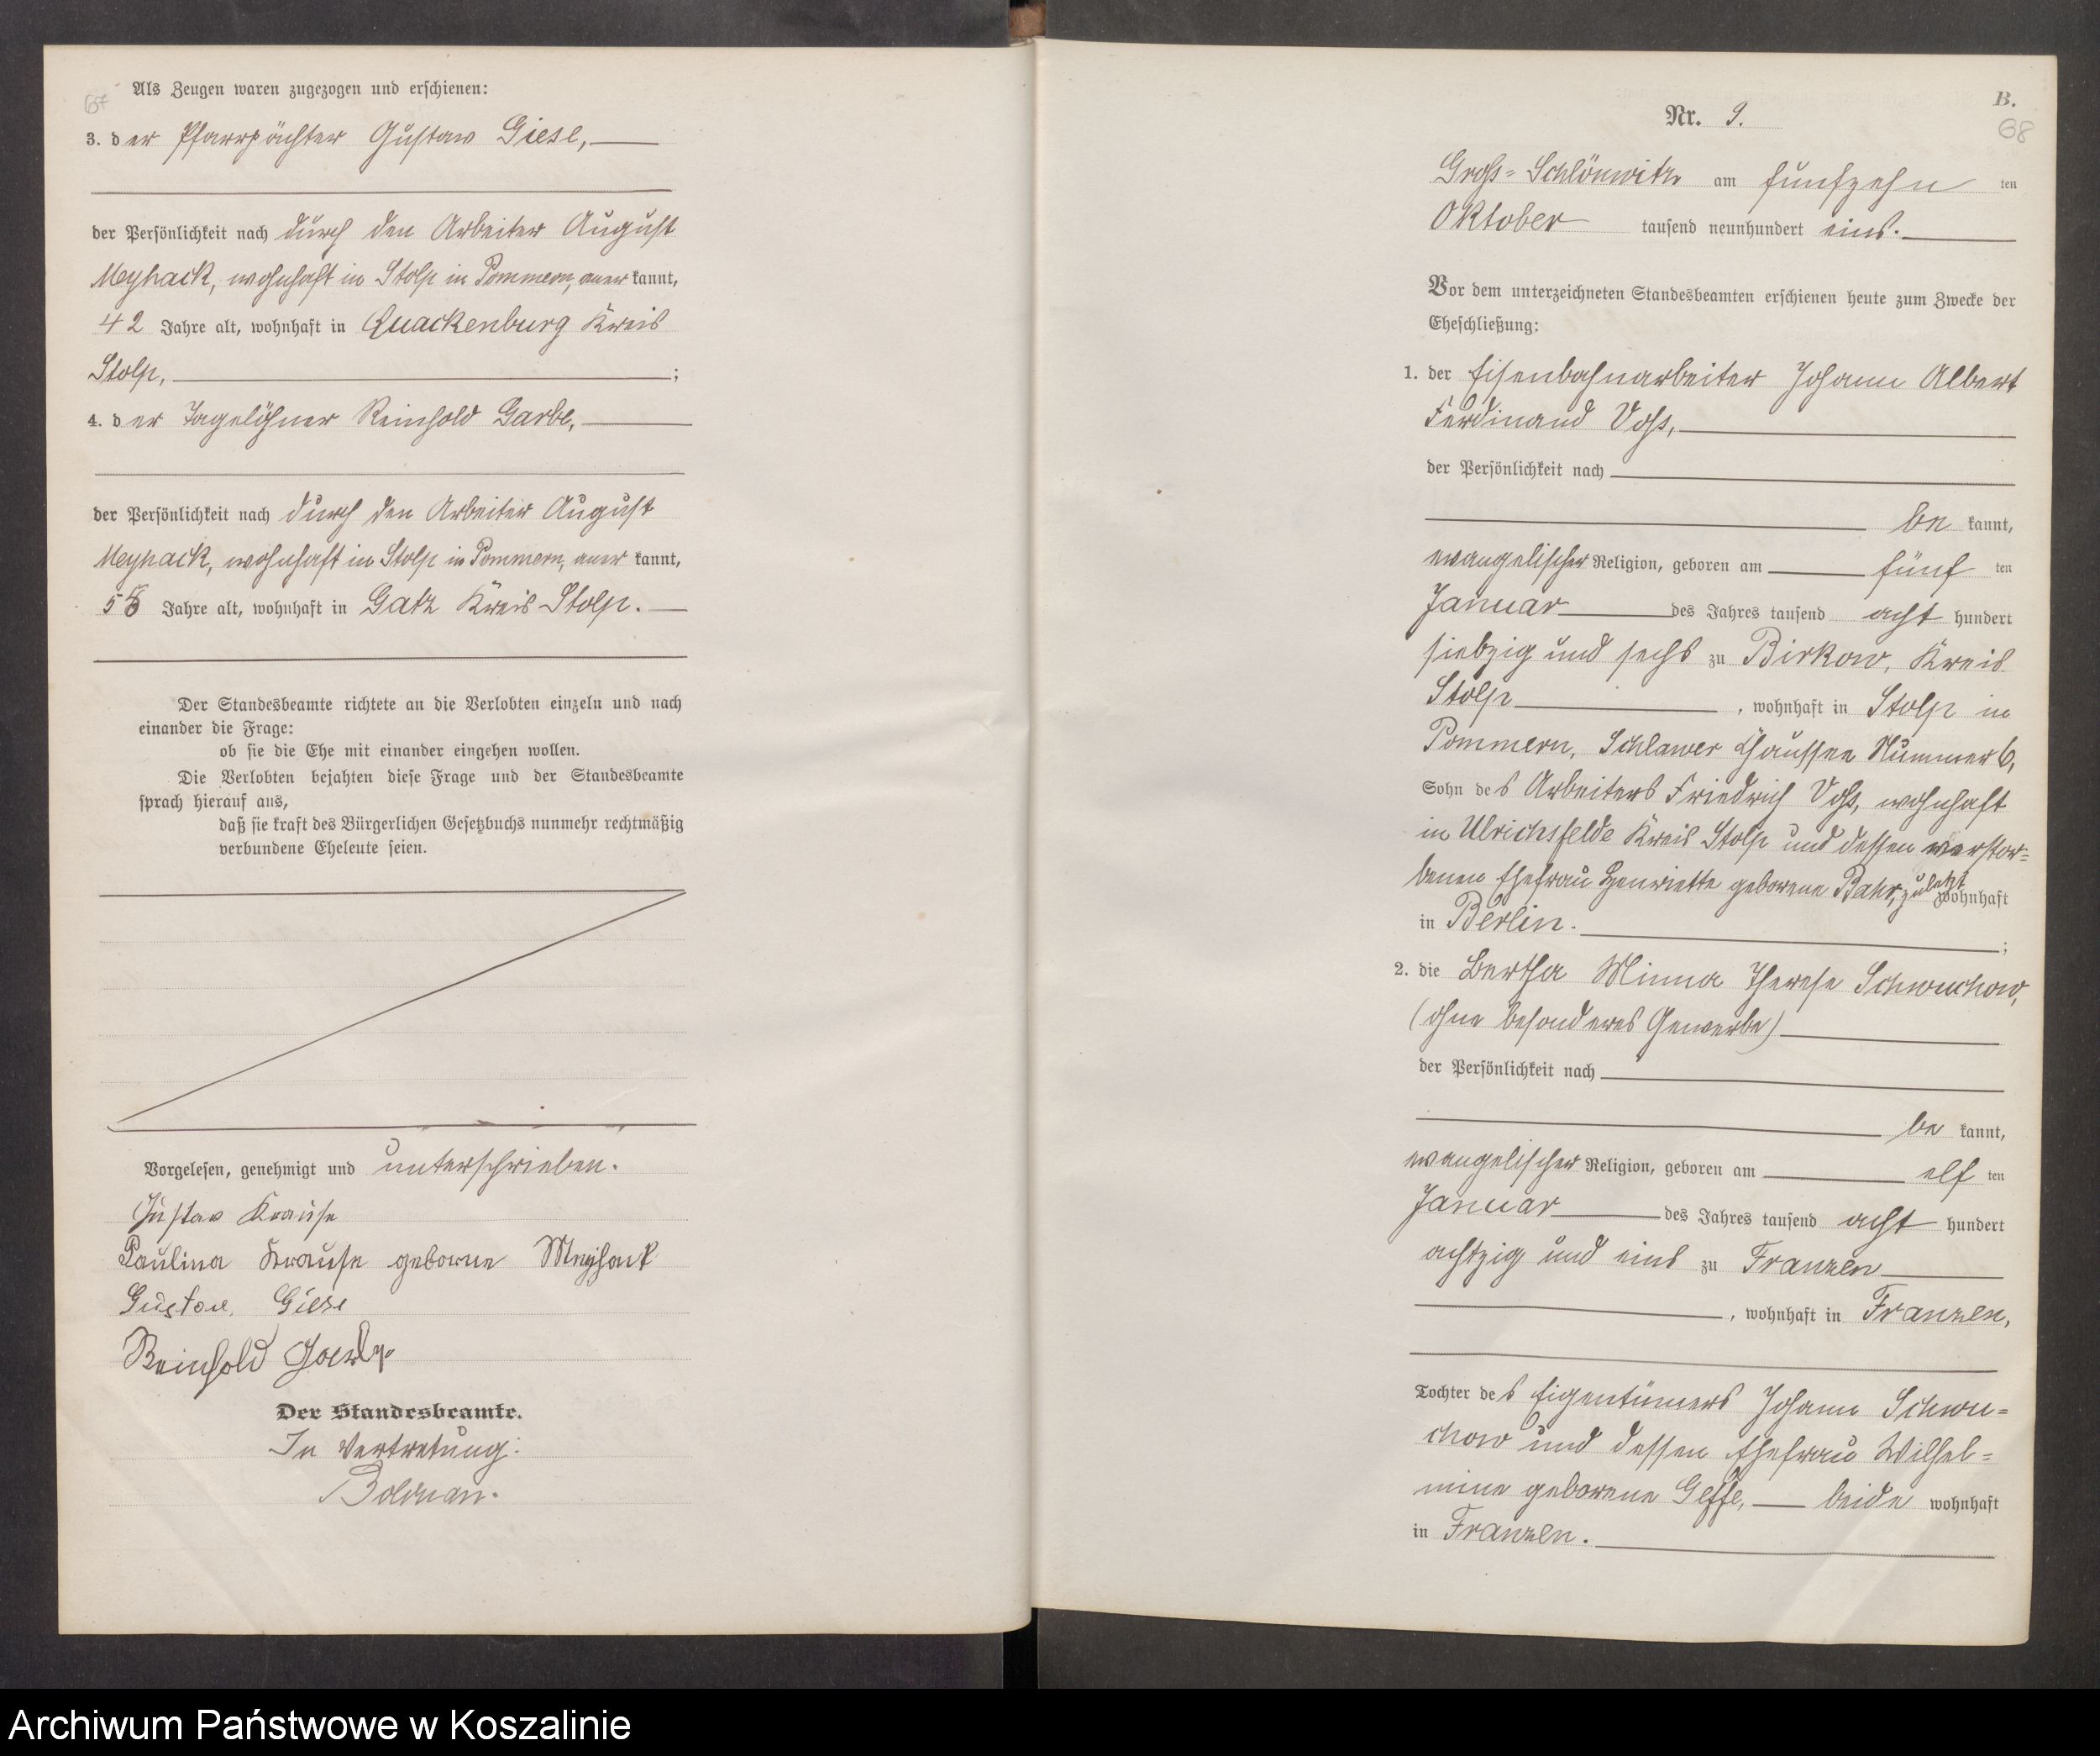 67
Als Zeugen waren zugezogen und erschienen:
3. der Pfarrpächter Gustav Giese,
der Persönlichkeit nach durch den Arbeiter August
Meyhack, wohnhaft in Stolp in Pommern, anerkannt,
42 Jahre alt, wohnhaft in Quackenburg Kreis
Stolp, ;
4. der Tagelöhner Reinhold Garbe,
der Persönlichkeit nach durch den Arbeiter August
Meyhack, wohnhaft in Stolp in Pommern, anerkannt,
Jahre alt, wohnhaft in Gatz Kreis Stolp.
Der Standesbeamte richtete an die Verlobten einzeln und nach
einander die Frage:
ob sie die Ehe mit einander eingehen wollen.
Die Verlobten bejahten diese Frage und der Standesbeamte
sprach hierauf aus,
daß sie kraft des Bürgerlichen Gesetzbuchs nunmehr rechtmäßig
verbundene Eheleute seien.
Vorgelesen, genehmigt und unterschrieben.
Gustav Krause
Paulina Krause geborne Meyhack
Gustav Giese
Reinhold Garbe
Der Standesbeamte.
In Vertretung:
Bolduan.
B.
68
Nr. 9.
Gross-Schlönwitz am fünfzehn ten
Oktober tausend neunhundert eins.
Vor dem unterzeichneten Standesbeamten erschienen heute zum Zwecke der
Eheschließung:
1. der Eisenbahnarbeiter Johann Albert
Ferdinand Voss,
der Persönlichkeit nach
be kannt,
evangelischer Religion, geboren am fünf ten
Januar des Jahres tausend acht hundert
siebzig und sechs zu Birkow, Kreis
Stolp , wohnhaft in Stolp in
Pommern, Schlawer Chaussee Nummer 6,
Sohn des Arbeiters Friedrich Voss, wohnhaft
in Ulrichsfelde Kreis Stolp und dessen verstor-
benen Ehefrau Henriette geborene Bahr, zuletzt wohnhaft
in Berlin. ;
2. die Bertha Minna Therese Schwuchow,
(ohne besonderes Gewerbe)
der Persönlichkeit nach
be kannt,
evangelischer Religion, geboren am elf ten
Januar des Jahres tausend acht hundert
achtzig und eins zu Franzen
, wohnhaft in Franzen,
Tochter des Eigentümers Johann Schwu-
chow und dessen Ehefrau Wilhel-
mine geborene Geffe, beide wohnhaft
in Franzen.
Archiwum Państwowe w Koszalinie